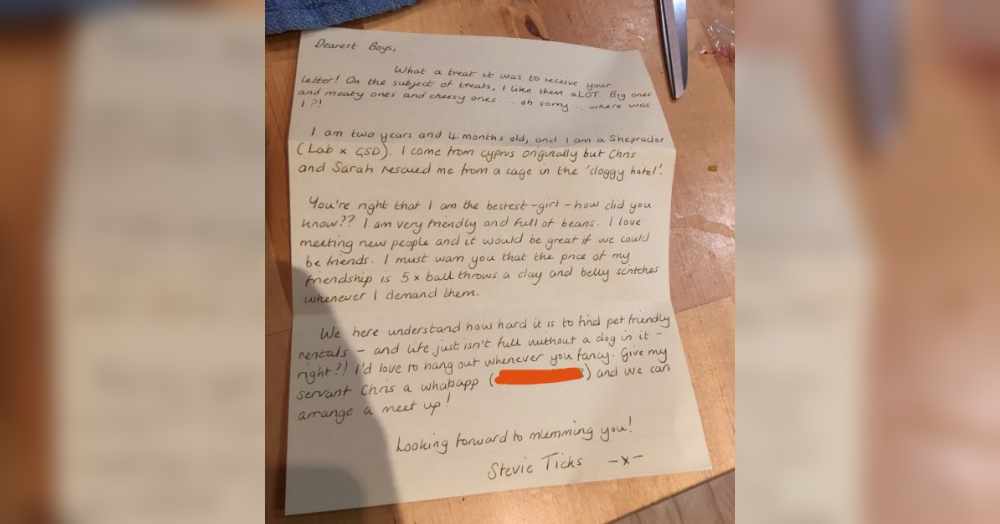 Dearest Boys,
What a treat it was to receive your
letter! On the subject of treats, I like them aLOT. Big ones
and meaty ones and cheesy ones ... oh sorry ... where was
I?!
I am two years and 4 months old, and I am a Sheprador
(Lab x GSD). I come from Cyprus originally but Chris
and Sarah rescued me from a cage in the 'doggy hotel'.
You're right that I am the bestest-girl - how did you
know?? I am very friendly and full of beans. I love
meeting new people and it would be great if we could
be friends. I must warn you that the price of my
friendship is 5 x ball throws a day and belly scritches
whenever I demand them.
We here understand how hard it is to find pet friendly
rentals - and life just isn't full without a dog in it -
right?! I'd love to hang out whenever you fancy. Give my
servant Chris a whatsapp ( ) and we can
arrange a meet up!
Looking forward to mlemming you!
Stevie Ticks -x-